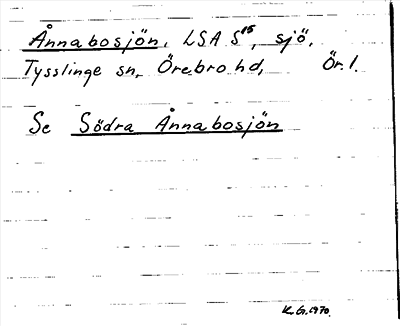 Ånnabosjön, LSA S¹⁵, sjö,
Tysslinge sn, Örebro hd, Ör. l.
Se Södra Ånnabosjön
K.G. 1970.